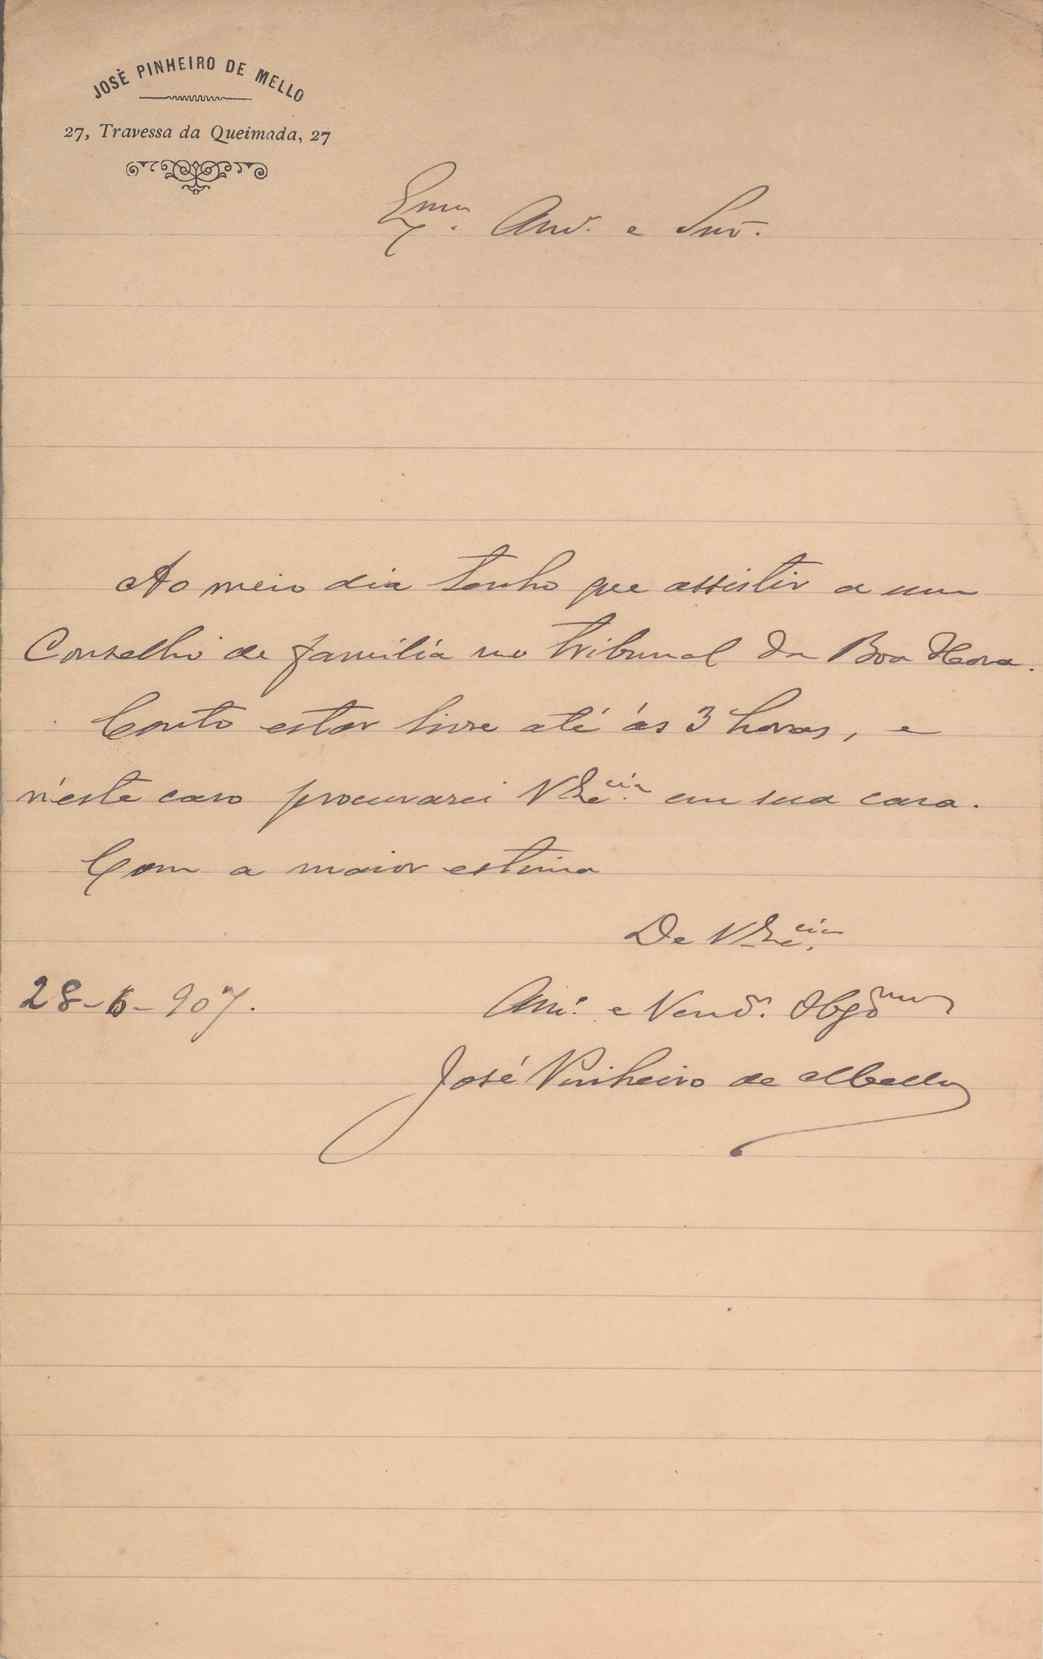 JOSÈ PINHEIRO DE MELLO
27, Travessa da Queimada, 27
Exmo. Amo. e Snr.
Ao meio dia tenho que assistir a um
Conselho de família no tribunal da Boa Hora.
Conto estar livre até ás 3 horas, e
n'este caso procurarei V Excia. em sua casa.
Com a maior estima
De V Excia.
28-6-907.
Amo. e Vendor. Obgdmo
José Pinheiro de Mello